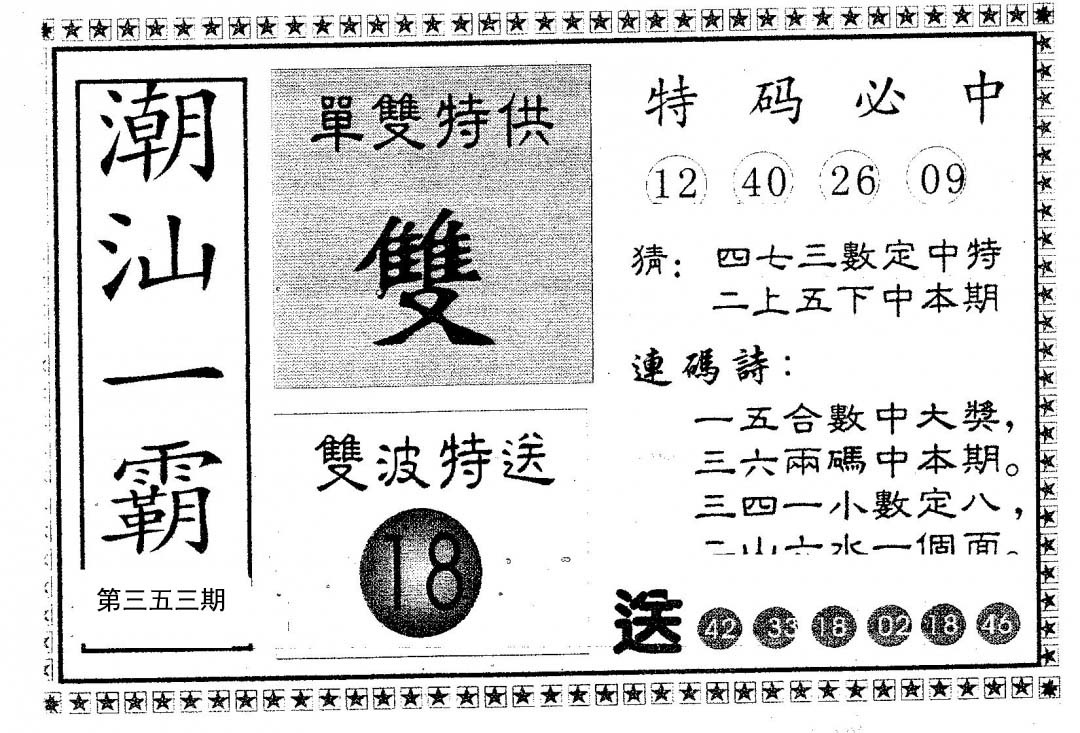 潮汕一霸
第三五三期
單雙特供
雙
雙波特送
18
特码必中
12 40 26 09
猜：四七三數定中特
二上五下中本期
連碼詩：
一五合數中大獎，
三六兩碼中本期。
三四一小數定八，
二山六水一個面。
送 42 33 18 02 18 46